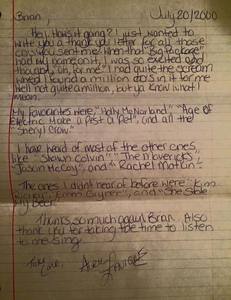 Brian, July 20/2000
Hey, How's it going? I just wanted to
write you a thank you letter for all those
cd's you sent me. When that "Big Package"
had my name on it, I was so excited and
thought, oh, for me. I had quite the scream
when I found a million cd's in it for me.
Well not quite a million, but ya know what I
mean.
My favourites were, "Holly McNarland", "Age of
Electric Make a Pest a Pet", and all the
"Sheryl Crow."
I have heard of most of the other ones,
like "Shawn Colvin", "The Mavericks"
"Jason McCoy", and "Rachel Matkin".
The ones I didn't hear of before were "Kim
and "She Stole
My Beer".
Thanks so much again Brian. Also
thank you for taking the time to listen
to me sing.